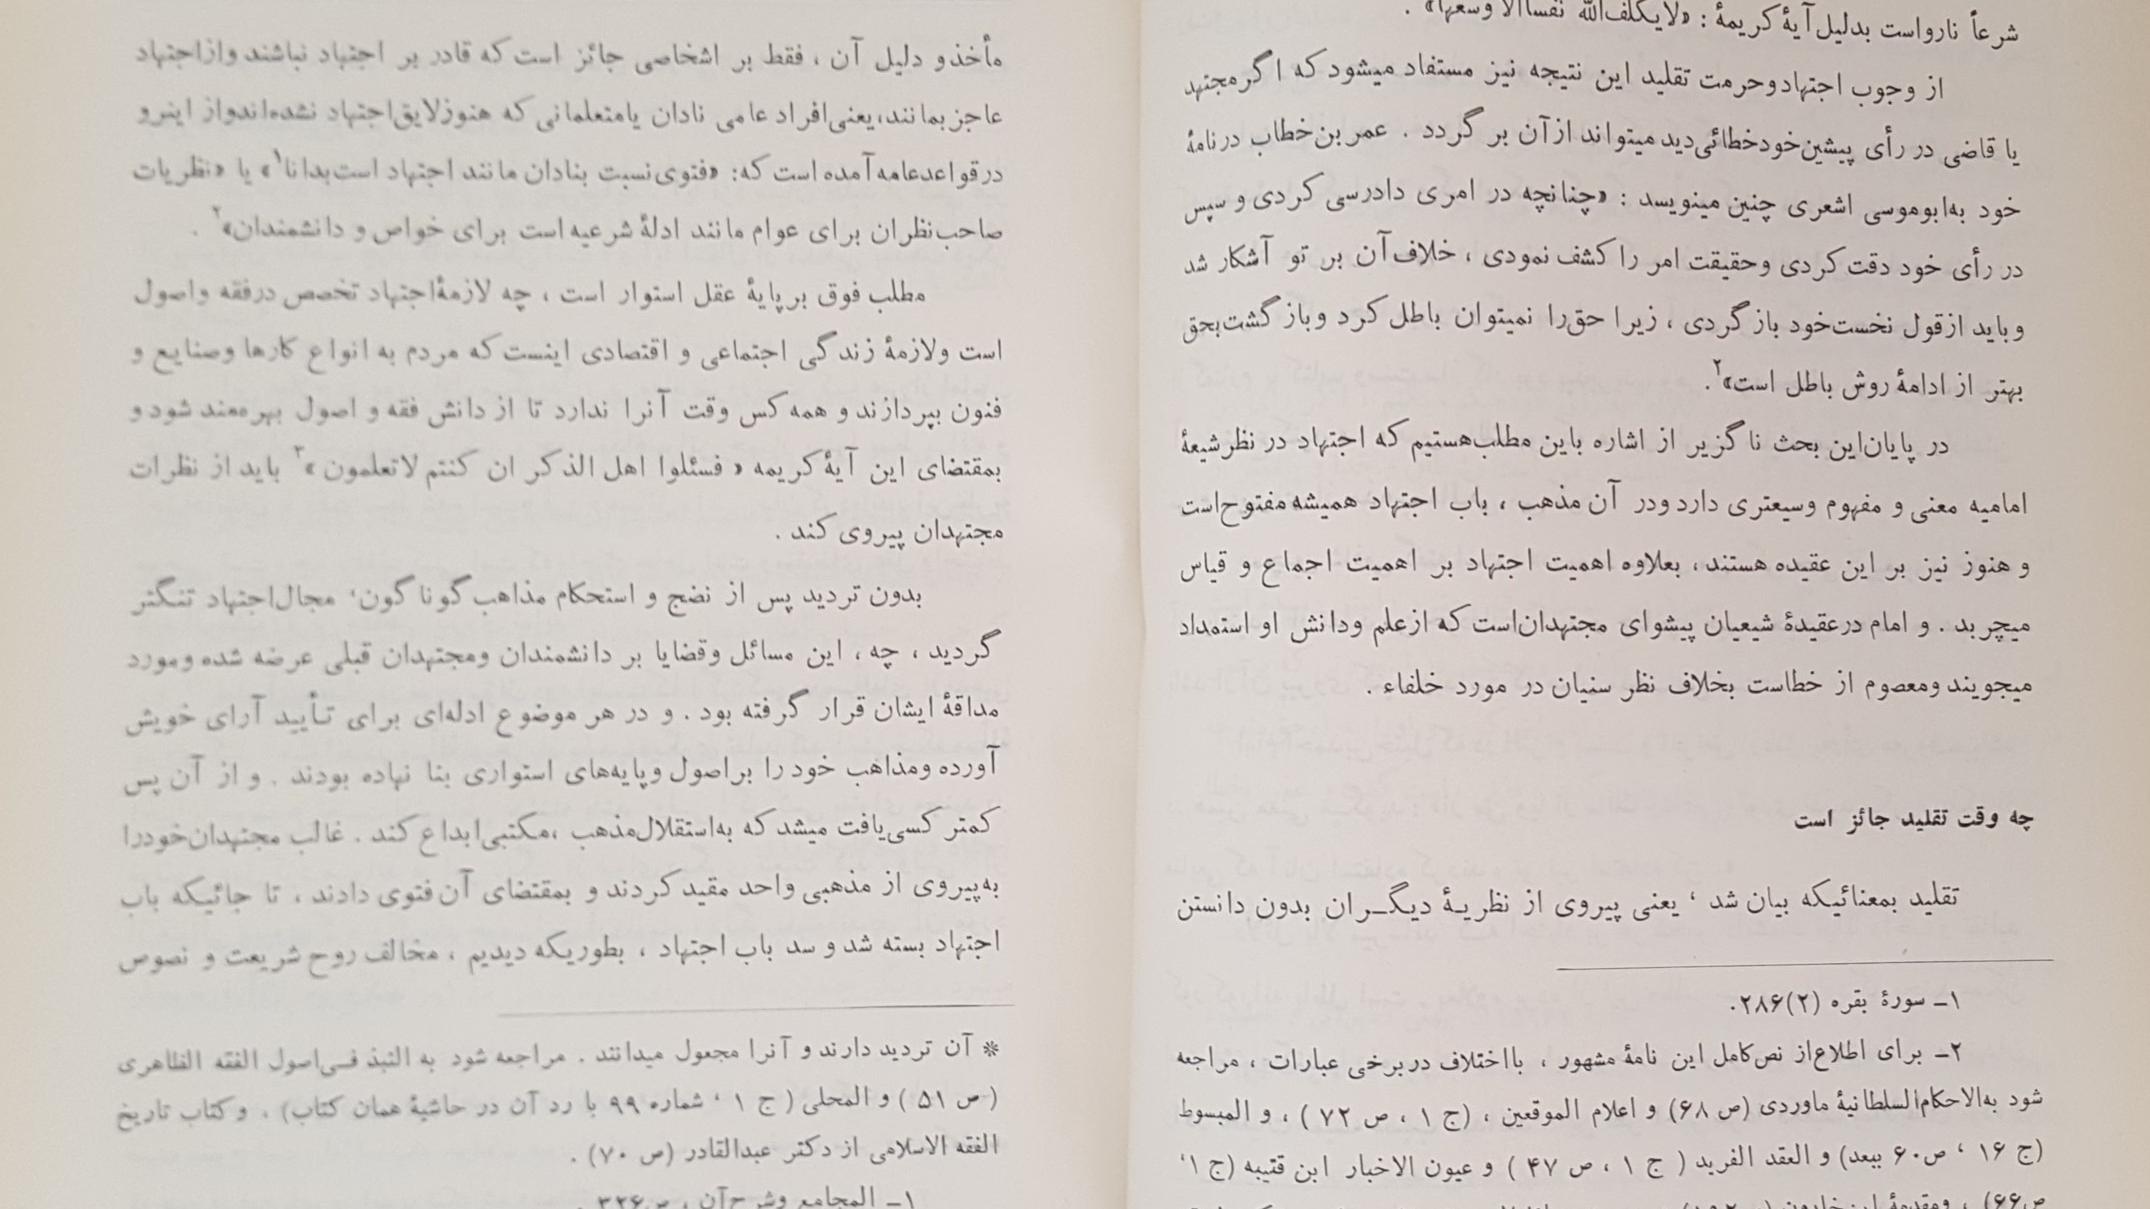 شرعاً نارواست بدلیل آیهٔ کریمهٔ : «لایکلف‌الله نفساً الا وسعها» .
از وجوب اجتهاد وحرمت تقلید این نتیجه نیز مستفاد میشود که اگر مجتهد
یا قاضی در رأی پیشین‌خود خطائی‌دید میتواند ازآن بر گردد . عمر بن‌خطاب درنامهٔ
خود به‌ابوموسی اشعری چنین مینویسد : «چنانچه در امری دادرسی کردی و سپس
در رأی خود دقت کردی وحقیقت امر را کشف نمودی ، خلاف آن بر تو آشکار شد
وباید ازقول نخست‌خود باز گردی ، زیرا حق‌را نمیتوان باطل کرد وباز گشت‌بحق
بهتر از ادامهٔ روش باطل است»۲.
در پایان‌این بحث ناگزیر از اشاره باین مطلب‌هستیم که اجتهاد در نظر شیعهٔ
امامیه معنی و مفهوم وسیعتری دارد ودر آن مذهب ، باب اجتهاد همیشه مفتوح‌است
و هنوز نیز بر این عقیده هستند ، بعلاوه اهمیت اجتهاد بر اهمیت اجماع و قیاس
میچربد . و امام درعقیدهٔ شیعیان پیشوای مجتهدان‌است که ازعلم ودانش او استمداد
میجویند ومعصوم از خطاست بخلاف نظر سنیان در مورد خلفاء .
چه وقت تقلید جائز است
تقلید بمعنائیکه بیان شد ، یعنی پیروی از نظریـهٔ دیگـران بدون دانستن
۱ـ سورهٔ بقره (۲)۲۸۶.
۲ـ برای اطلاع‌از نص‌کامل این نامهٔ مشهور ، بااختلاف دربرخی عبارات ، مراجعه
شود به‌الاحکام‌السلطانیهٔ ماوردی (ص ۶۸) و اعلام الموقعین ، (ج ۱ ، ص ۷۲ ) ، و المبسوط
(ج ۱۶ ، ص۶۰ ببعد) و العقد الفرید ( ج ۱ ، ص ۴۷ ) و عیون الاخبار ابن قتیبه (ج ۱،
ص۶۶) ، ومقدمهٔ ابن‌خلدون
مأخذو دلیل آن ، فقط بر اشخاصی جائز است که قادر بر اجتهاد نباشند وازاجتهاد
عاجز بمانند، یعنی‌افراد عامی نادان یامتعلمانی که هنوزلایق‌اجتهاد نشده‌اندواز اینرو
درقواعدعامه آمده است که: «فتوی‌نسبت بنادان مانند اجتهاد است‌بدانا۱» یا «نظریات
صاحب‌نظران برای عوام مانند ادلهٔ شرعیه است برای خواص و دانشمندان»۲ .
مطلب فوق بر پایهٔ عقل استوار است ، چه لازمهٔ اجتهاد تخصص درفقه واصول
است ولازمهٔ زندگی اجتماعی و اقتصادی اینست که مردم به انواع کارها وصنایع و
فنون بپردازند و همه کس وقت آنرا ندارد تا از دانش فقه و اصول بهره‌مند شود و
بمقتضای این آیهٔ کریمه « فسئلوا اهل الذکر ان کنتم لاتعلمون »۳ باید از نظرات
مجتهدان پیروی کند .
بدون تردید پس از نضج و استحکام مذاهب گوناگون، مجال‌اجتهاد تنگتر
گردید ، چه ، این مسائل وقضایا بر دانشمندان ومجتهدان قبلی عرضه شده ومورد
مداقهٔ ایشان قرار گرفته بود . و در هر موضوع ادله‌ای برای تـأیید آرای خویش
آورده ومذاهب خود را بر اصول وپایه‌های استواری بنا نهاده بودند . و از آن پس
کمتر کسی‌یافت میشد که به‌استقلال‌مذهب ،مکتبی‌ابداع کند . غالب مجتهدان‌خودرا
به‌پیروی از مذهبی واحد مقید کردند و بمقتضای آن فتوی دادند ، تا جائیکه باب
اجتهاد بسته شد و سد باب اجتهاد ، بطوریکه دیدیم ، مخالف روح شریعت و نصوص
* آن تردید دارند و آنرا مجعول میدانند . مراجعه شود به النبذ فـی‌اصول الفقه الظاهری
(ص ۵۱ ) و المحلی ( ج ۱ ، شماره ۹۹ با رد آن در حاشیهٔ همان کتاب) ، وکتاب تاریخ
الفقه الاسلامی از دکتر عبدالقادر (ص ۷۰) .
۱ـ المجامع وشرح‌آن ، ص۳۲۶ .